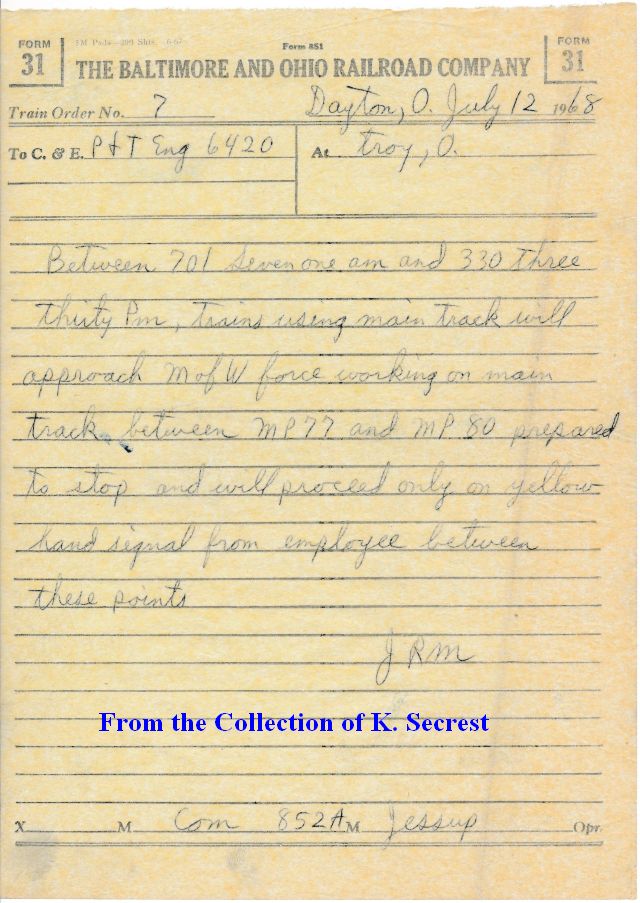 FORM 31
5M Pads—200 Shts. 6-67
Form 851
FORM 31
THE BALTIMORE AND OHIO RAILROAD COMPANY
Train Order No. 7 Dayton, O. July 12 1968
To C. & E. P&T Eng 6420 At Troy, O.
Between 701 seven one am and 330 three
thirty Pm, trains using main track will
approach M of W force working on main
track between MP 77 and MP 80 prepared
to stop and will proceed only on yellow
hand signal from employee between
these points
JRM
From the Collection of K. Secrest
X M Com 852A M Jessup Opr.